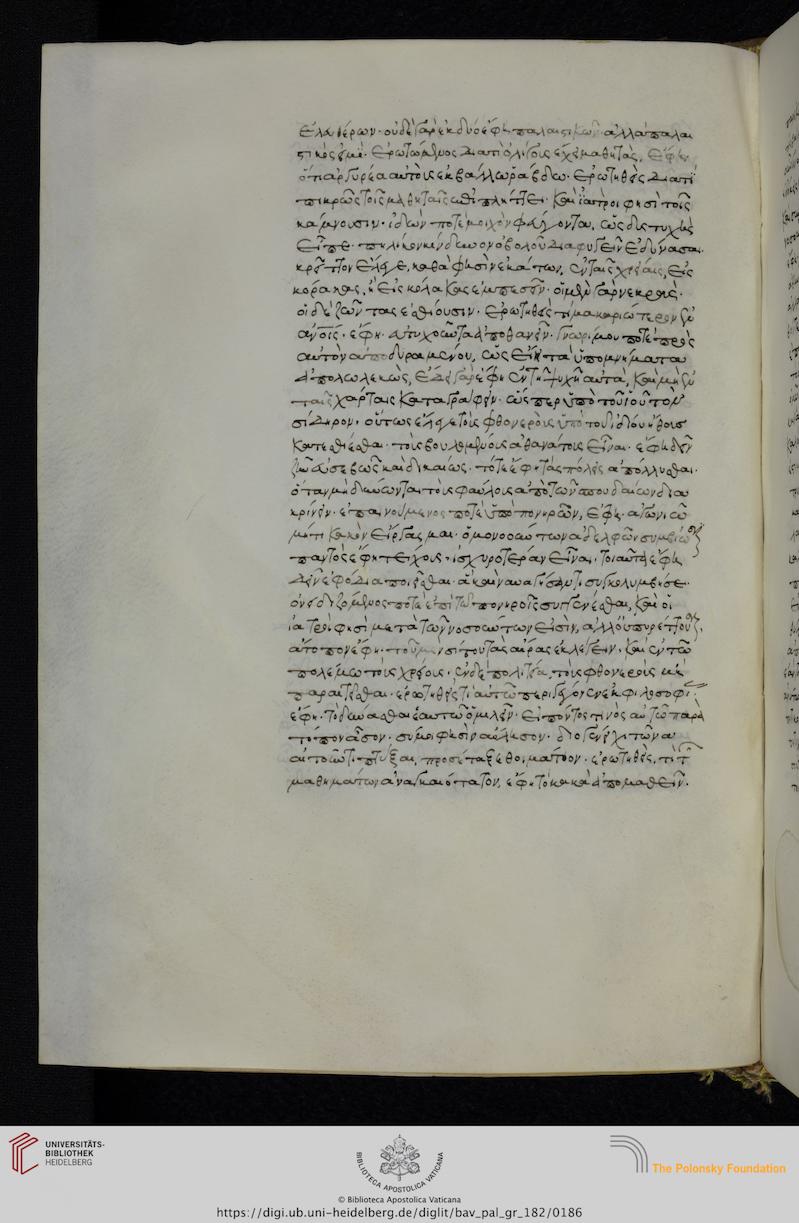 ἐλευθέρων· οὐδὲ γὰρ ἐκ δύο ἔφη παλαιστικῶν· ἀλλὰ παλαι
στικός εἰμι· ἐρωτώμενος διατί ὀλίγους ἔχει μαθητὰς, ἔφη
ὅτι ἀργυρέα αὐτοὺς ἐκβάλλω ῥάβδω· ἐρωτηθεὶς διατί
πικρῶς τοῖς μαθηταῖς ἐπιπλήττει· καὶ ἰατροί φησι τοῖς
κάμνουσιν· ἰδών ποτε μοιχὸν φεύγοντα, ὡς δυστυχὴς
εἶπε· πηλίκον κίνδυνον ὀβολοῦ διαφυγεῖν ἐδύνασαι·
κρεῖττον ἔλεγε, καθὰ φησὶν ἑκάτων, ἐν ταῖς χρείαις, εἰς
κόρακας, ἢ εἰς κόλακας ἐμπεσεῖν· οἱ μὲν γὰρ νεκροὺς·
οἱ δὲ ζῶντας ἐσθίουσιν· ἐρωτηθεὶς τί μακαριώτερον ἐν
ἀνοις· ἔφη· εὐτυχοῦντα ἀποθανεῖν· γνωρίμου ποτὲ πρὸς
αὐτὸν ἀποδυραμένου, ὡς εἴη τὰ ὑπομνήματα
ἀπολωλεκὼς, ἔδει γὰρ ἔφη ἐν τῆ ψυχῆ αὐτὰ, καὶ μὴ ἐν
ταῖς χάρταις καταγράφειν· ὥσπερ ὑπὸ τοῦ ἰοῦ τὸν
σίδηρον· οὕτως ἔλεγε τοὺς φθονεροὺς ὑπὸ τοῦ ἰδίου ἤθους
κατεσθίεσθαι· τοὺς βουλομένους ἀθανάτους εἶναι· ἔφη δεῖν
ζῆν εὐσεβῶς καὶ δικαίως· τότε ἔφη τὰς πόλεις ἀπόλλυσθαι·
ὅταν μὴ δύνωνται τοὺς φαύλους ἀπὸ τῶν σπουδαίων δια
κρίνειν· ἐπαινούμενος ποτὲ ὑπὸ πονηρῶν, ἔφη· ἀγωνιῶ
μήτι κακὸν εἴργασμαι· ὁμονοούντων ἀδελφῶν συμβίωσιν
παντὸς ἔφη τείχους· ἰσχυροτέραν εἶναι· τοιαῦτα ἔφη
δεῖν ἐφόδια ποιεῖσθαι· ἃ καὶ ναυαγήσαντι συγκολυμβήσει·
ὀνειδιζόμενος ποτὲ ἐπὶ τῶ πονηροῖς συγγενέσθαι, καὶ οἱ
ἰατροί φησι μετὰ τῶν νοσούντων εἰσὶν, ἀλλ' οὐ πυρέττουσιν·
ἄτοπον ἔφη· τοῦ μὲν σίτου τὰς αἴρας ἐκλέγειν· καὶ ἐν τῶ
πολέμω τοὺς χρείους· ἐν δὲ πολιτεία, τοὺς φθονεροὺς μὴ
παραιτεῖσθαι· ἐρωτηθεὶς τί αὐτῶ περιγέγονεν ἐκ φιλοσοφίας
ἔφη· τὸ δύνασθαι ἑαυτῶ ὁμιλεῖν· εἰπόντος τινὸς αὐτῶ παρὰ
πότον ᾆσον· σύ μοι φησὶν αὔλησον· διογένει χιτῶνα
αἰτοῦντι πτύξαι, προσέταξε θοιμάτιον· ἐρωτηθεὶς, τί τῶν
μαθημάτων ἀναγκαιότατον, ἔφη τὸ κακὰ ἀπομαθεῖν·
UNIVERSITÄTS-
BIBLIOTHEK
HEIDELBERG
BIBLIOTECA APOSTOLICA VATICANA
The Polonsky Foundation
© Biblioteca Apostolica Vaticana
https://digi.ub.uni-heidelberg.de/diglit/bav_pal_gr_182/0186